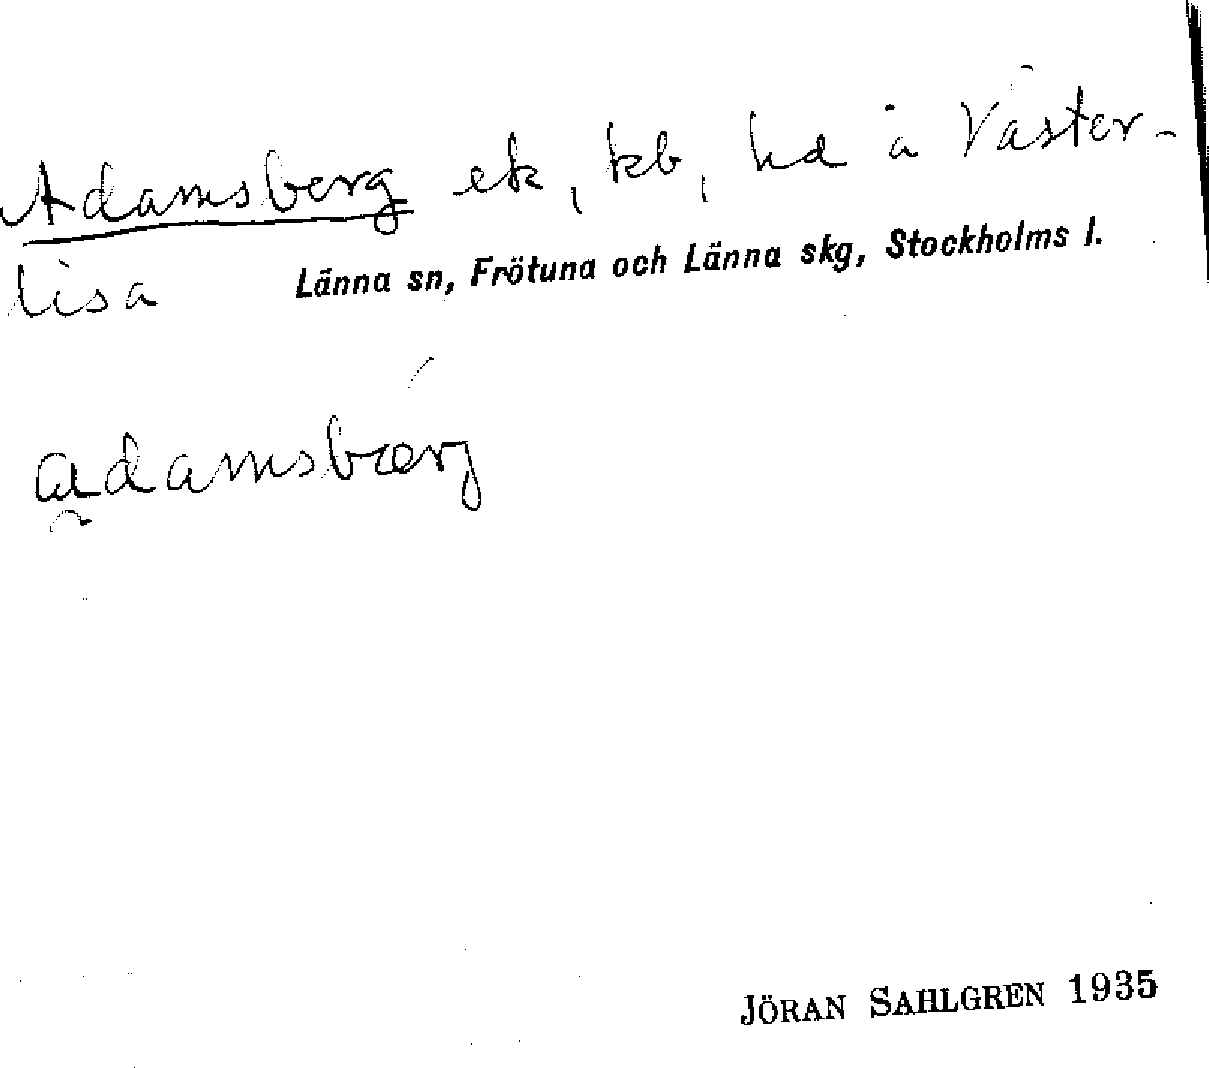 Adamsberg ek, kb, hd å Väster-
lisa
Länna sn, Frötuna och Länna skg, Stockholms l.
adamsbærj
JÖRAN SAHLGREN 1935